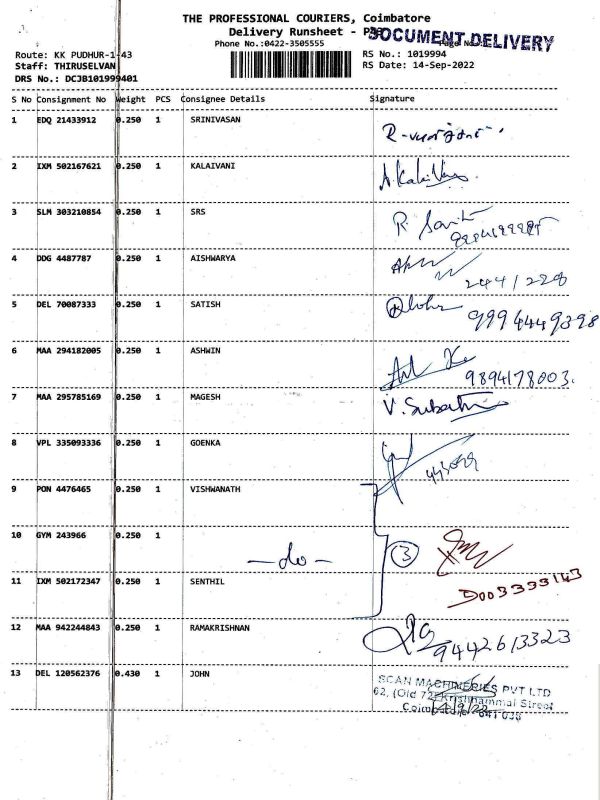 THE PROFESSIONAL COURIERS, Coimbatore
Delivery Runsheet -
DOCUMENT DELIVERY
Phone No.:0422-3505555
Route: KK PUDHUR-1-43
RS No.: 1019994
Staff: THIRUSELVAN
RS Date: 14-Sep-2022
DRS No.: DCJB101999401
S No Consignment No Weight PCS Consignee Details Signature
1 EDQ 21433912 0.250 1 SRINIVASAN
2 IXM 502167621 0.250 1 KALAIVANI
3 SLM 303210854 0.250 1 SRS
4 DDG 4487787 0.250 1 AISHWARYA
5 DEL 70087333 0.250 1 SATISH
9994449398
6 MAA 294182005 0.250 1 ASHWIN
9894178003.
7 MAA 295785169 0.250 1 MAGESH V. Subathi
8 VPL 335093336 0.250 1 GOENKA
9 PON 4476465 0.250 1 VISHWANATH
10 GYM 243966 0.250 1 — do — 3
11 IXM 502172347 0.250 1 SENTHIL
D003333143
12 MAA 942244843 0.250 1 RAMAKRISHNAN
9442613323
13 DEL 120562376 0.430 1 JOHN
SCAN MACHINERIES PVT LTD
62, (Old 72) Krishnammal Street